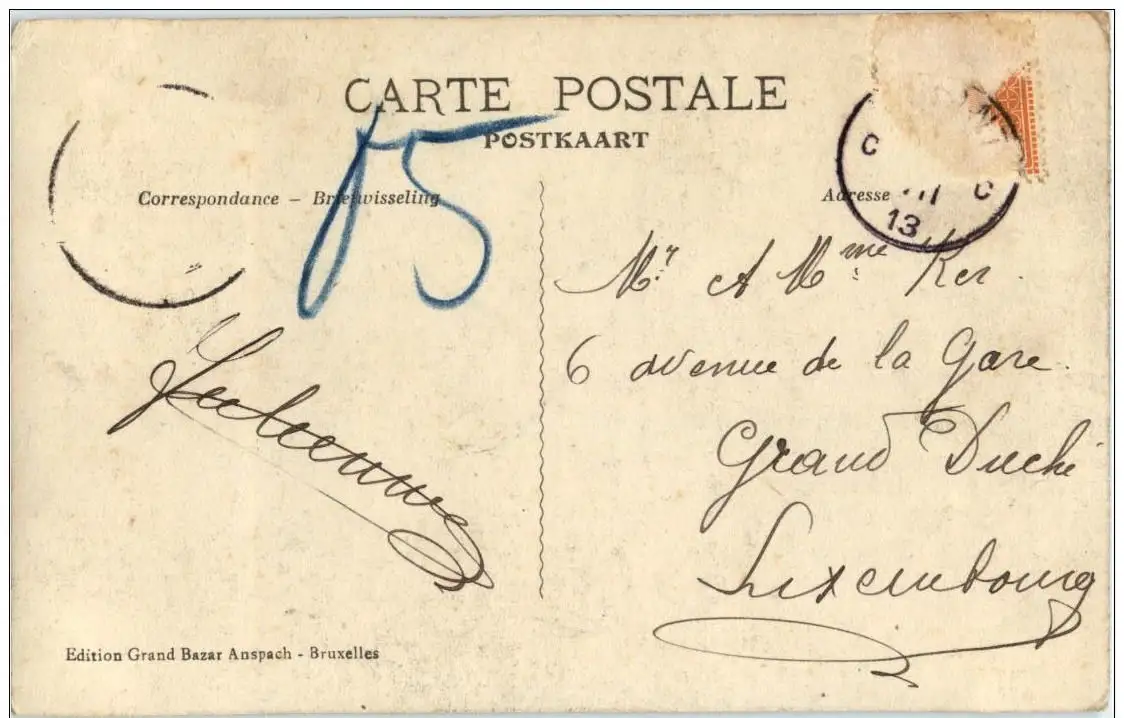 CARTE POSTALE
POSTKAART
15
Correspondance – Briefwisseling
Adresse
C III C
13
Mr et Mme Ker
6 avenue de la Gare
Grand Duché
Luxembourg
Edition Grand Bazar Anspach - Bruxelles